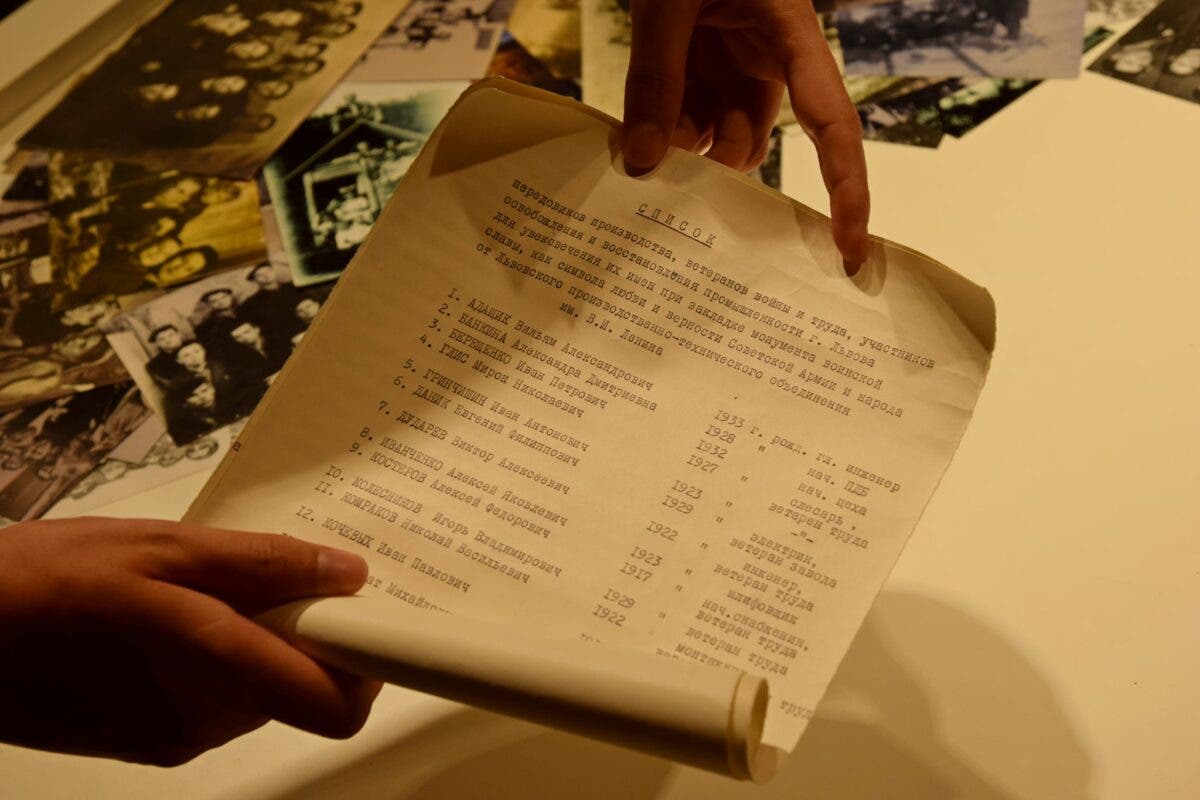 СПИСОК
передовиков производства, ветеранов войны и труда, участников
освобождения и восстановления промышленности г. Львова
для увековечения их имен при закладке монумента воинской
славы, как символа любви и верности Советской Армии и народа
от Львовского производственно-технического объединения
им. В.И. Ленина
1. АДАЩИК Вильям Александрович 1933 г. рожд. гл. инженер
2. БАНКИНА Александра Дмитриевна 1928 " нач. ПДБ
3. БЕРЕЩЕНКО Иван Петрович 1932 " нач. цеха
4. ГЛИС Мирон Николаевич 1927 " слесарь,
ветарен труда
5. ГРИНЧИШИН Иван Антонович 1923 " -"-
6. ДАНИК Евгений Филиппович 1929 " электрик,
ветеран завода
7. ДУДАРЕВ Виктор Алексеевич 1922 " инженер,
ветеран труда
8. ИВАНЧЕНКО Алексей Яковлевич 1923 " шлифовщик
9. КОСТЕРОВ Алексей Федорович 1917 " нач.снабжении,
ветеран труда
10. КОЛЕСНИКОВ Игорь Владимирович 1929 " ветеран труда
11. КОМРАКОВ Николай Васильевич 1922 "
12. КОЧЕВЫХ Иван Павлович